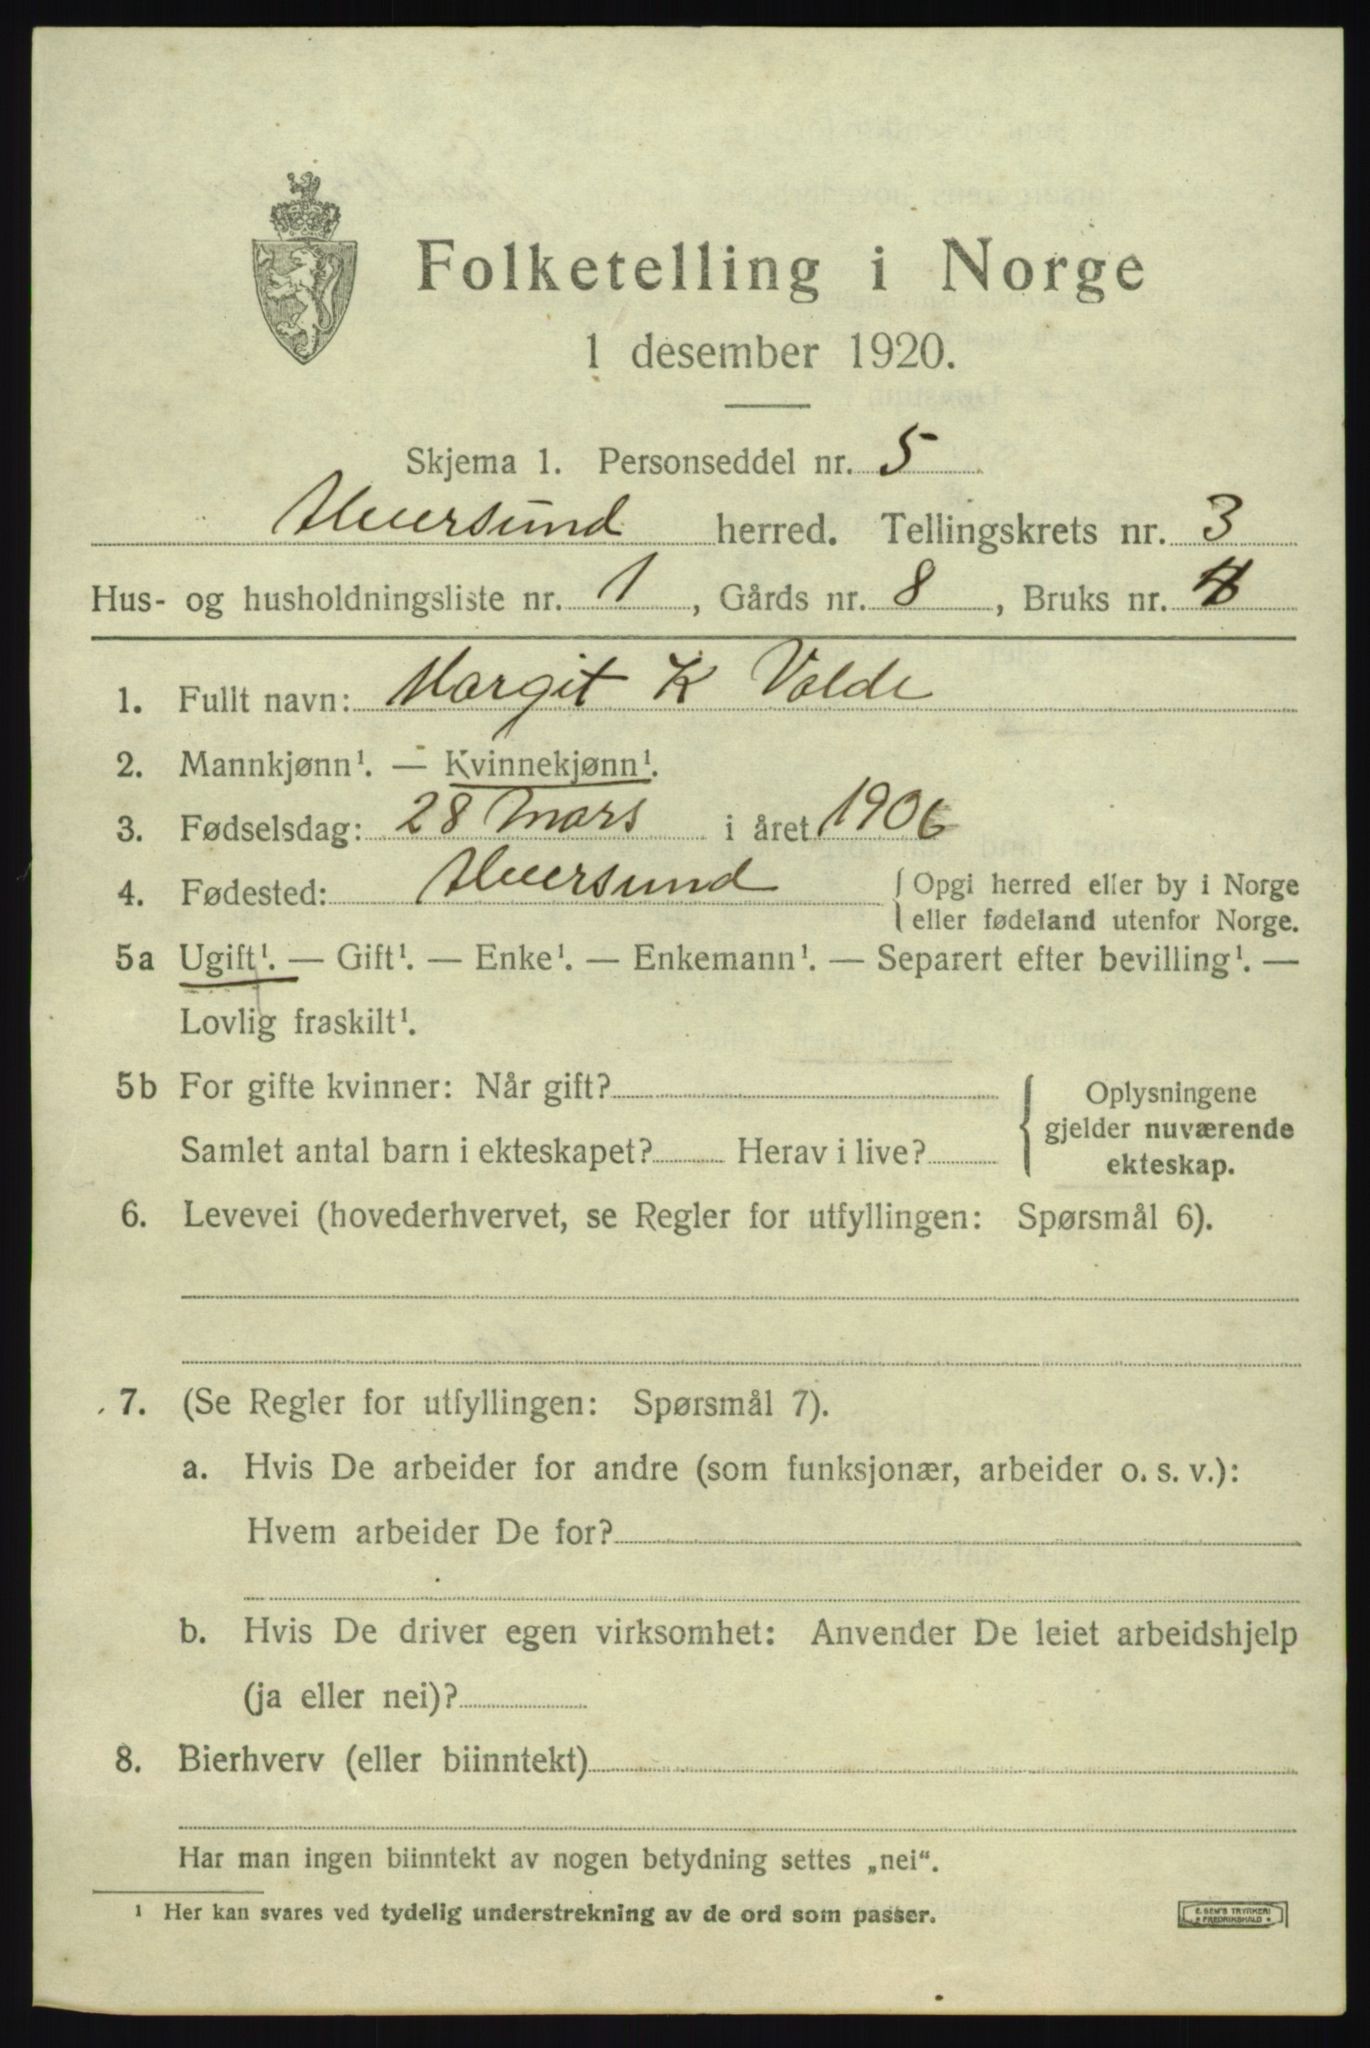 Folketelling i Norge
1 desember 1920.
Skjema 1. Personseddel nr. 5
Alversund herred. Tellingskrets nr. 3
Hus- og husholdningsliste nr. 1, Gårds nr. 8, Bruks nr.
1. Fullt navn: Margit K Valde
2. Mannkjønn¹. — Kvinnekjønn¹.
3. Fødselsdag: 28 Mars i året 1906
4. Fødested: Alversund { Opgi herred eller by i Norge
eller fødeland utenfor Norge.
5a Ugift¹. — Gift¹. — Enke¹. — Enkemann¹. — Separert efter bevilling¹. —
Lovlig fraskilt¹.
5b For gifte kvinner: Når gift? { Oplysningene
gjelder nuværende
Samlet antal barn i ekteskapet? Herav i live? ekteskap.
6. Levevei (hovederhvervet, se Regler for utfyllingen: Spørsmål 6).
7. (Se Regler for utfyllingen: Spørsmål 7).
a. Hvis De arbeider for andre (som funksjonær, arbeider o. s. v.):
Hvem arbeider De for?
b. Hvis De driver egen virksomhet: Anvender De leiet arbeidshjelp
(ja eller nei)?
8. Bierhverv (eller biinntekt)
Har man ingen biinntekt av nogen betydning settes „nei“.
¹ Her kan svares ved tydelig understrekning av de ord som passer.
E. SEM'S TRYKKERI
* FREDRIKSHALD *